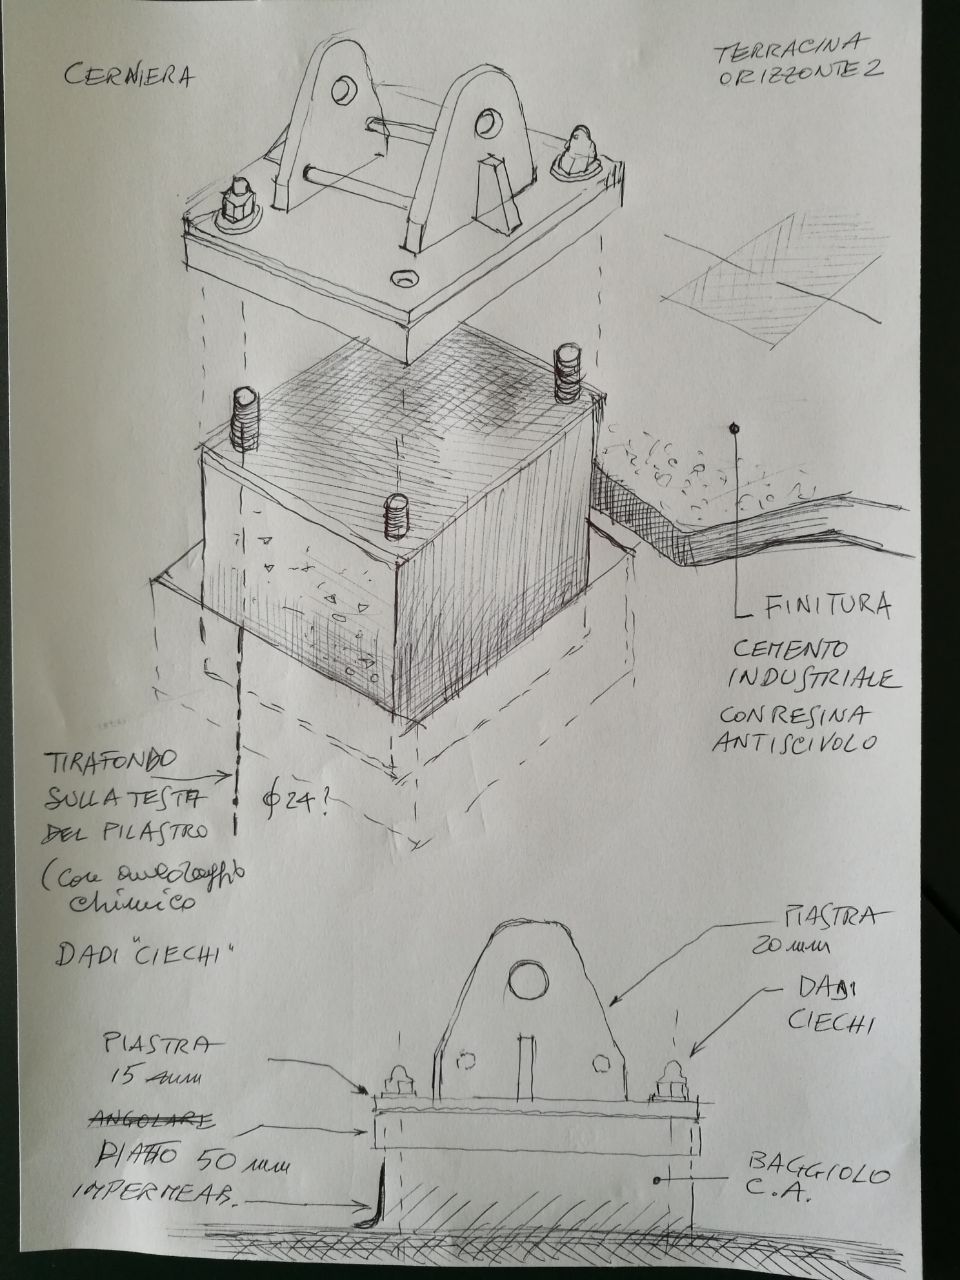 CERNIERA
TERRACINA
ORIZZONTE 2
FINITURA
CEMENTO
INDUSTRIALE
CON RESINA
ANTISCIVOLO
TIRAFONDO
SULLA TESTA
DEL PILASTRO
(con ancoraggio
chimico
φ24?
DADI "CIECHI"
PIASTRA
20 mm
DADI
CIECHI
PIASTRA
15 mm
ANGOLARE
PIATTO 50 mm
IMPERMEAB.
BAGGIOLO
C.A.